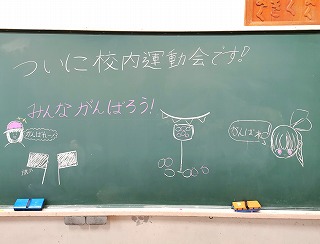 ついに校内運動会です!!
みんながんばろう!
がんばれ〜
がんばれ!